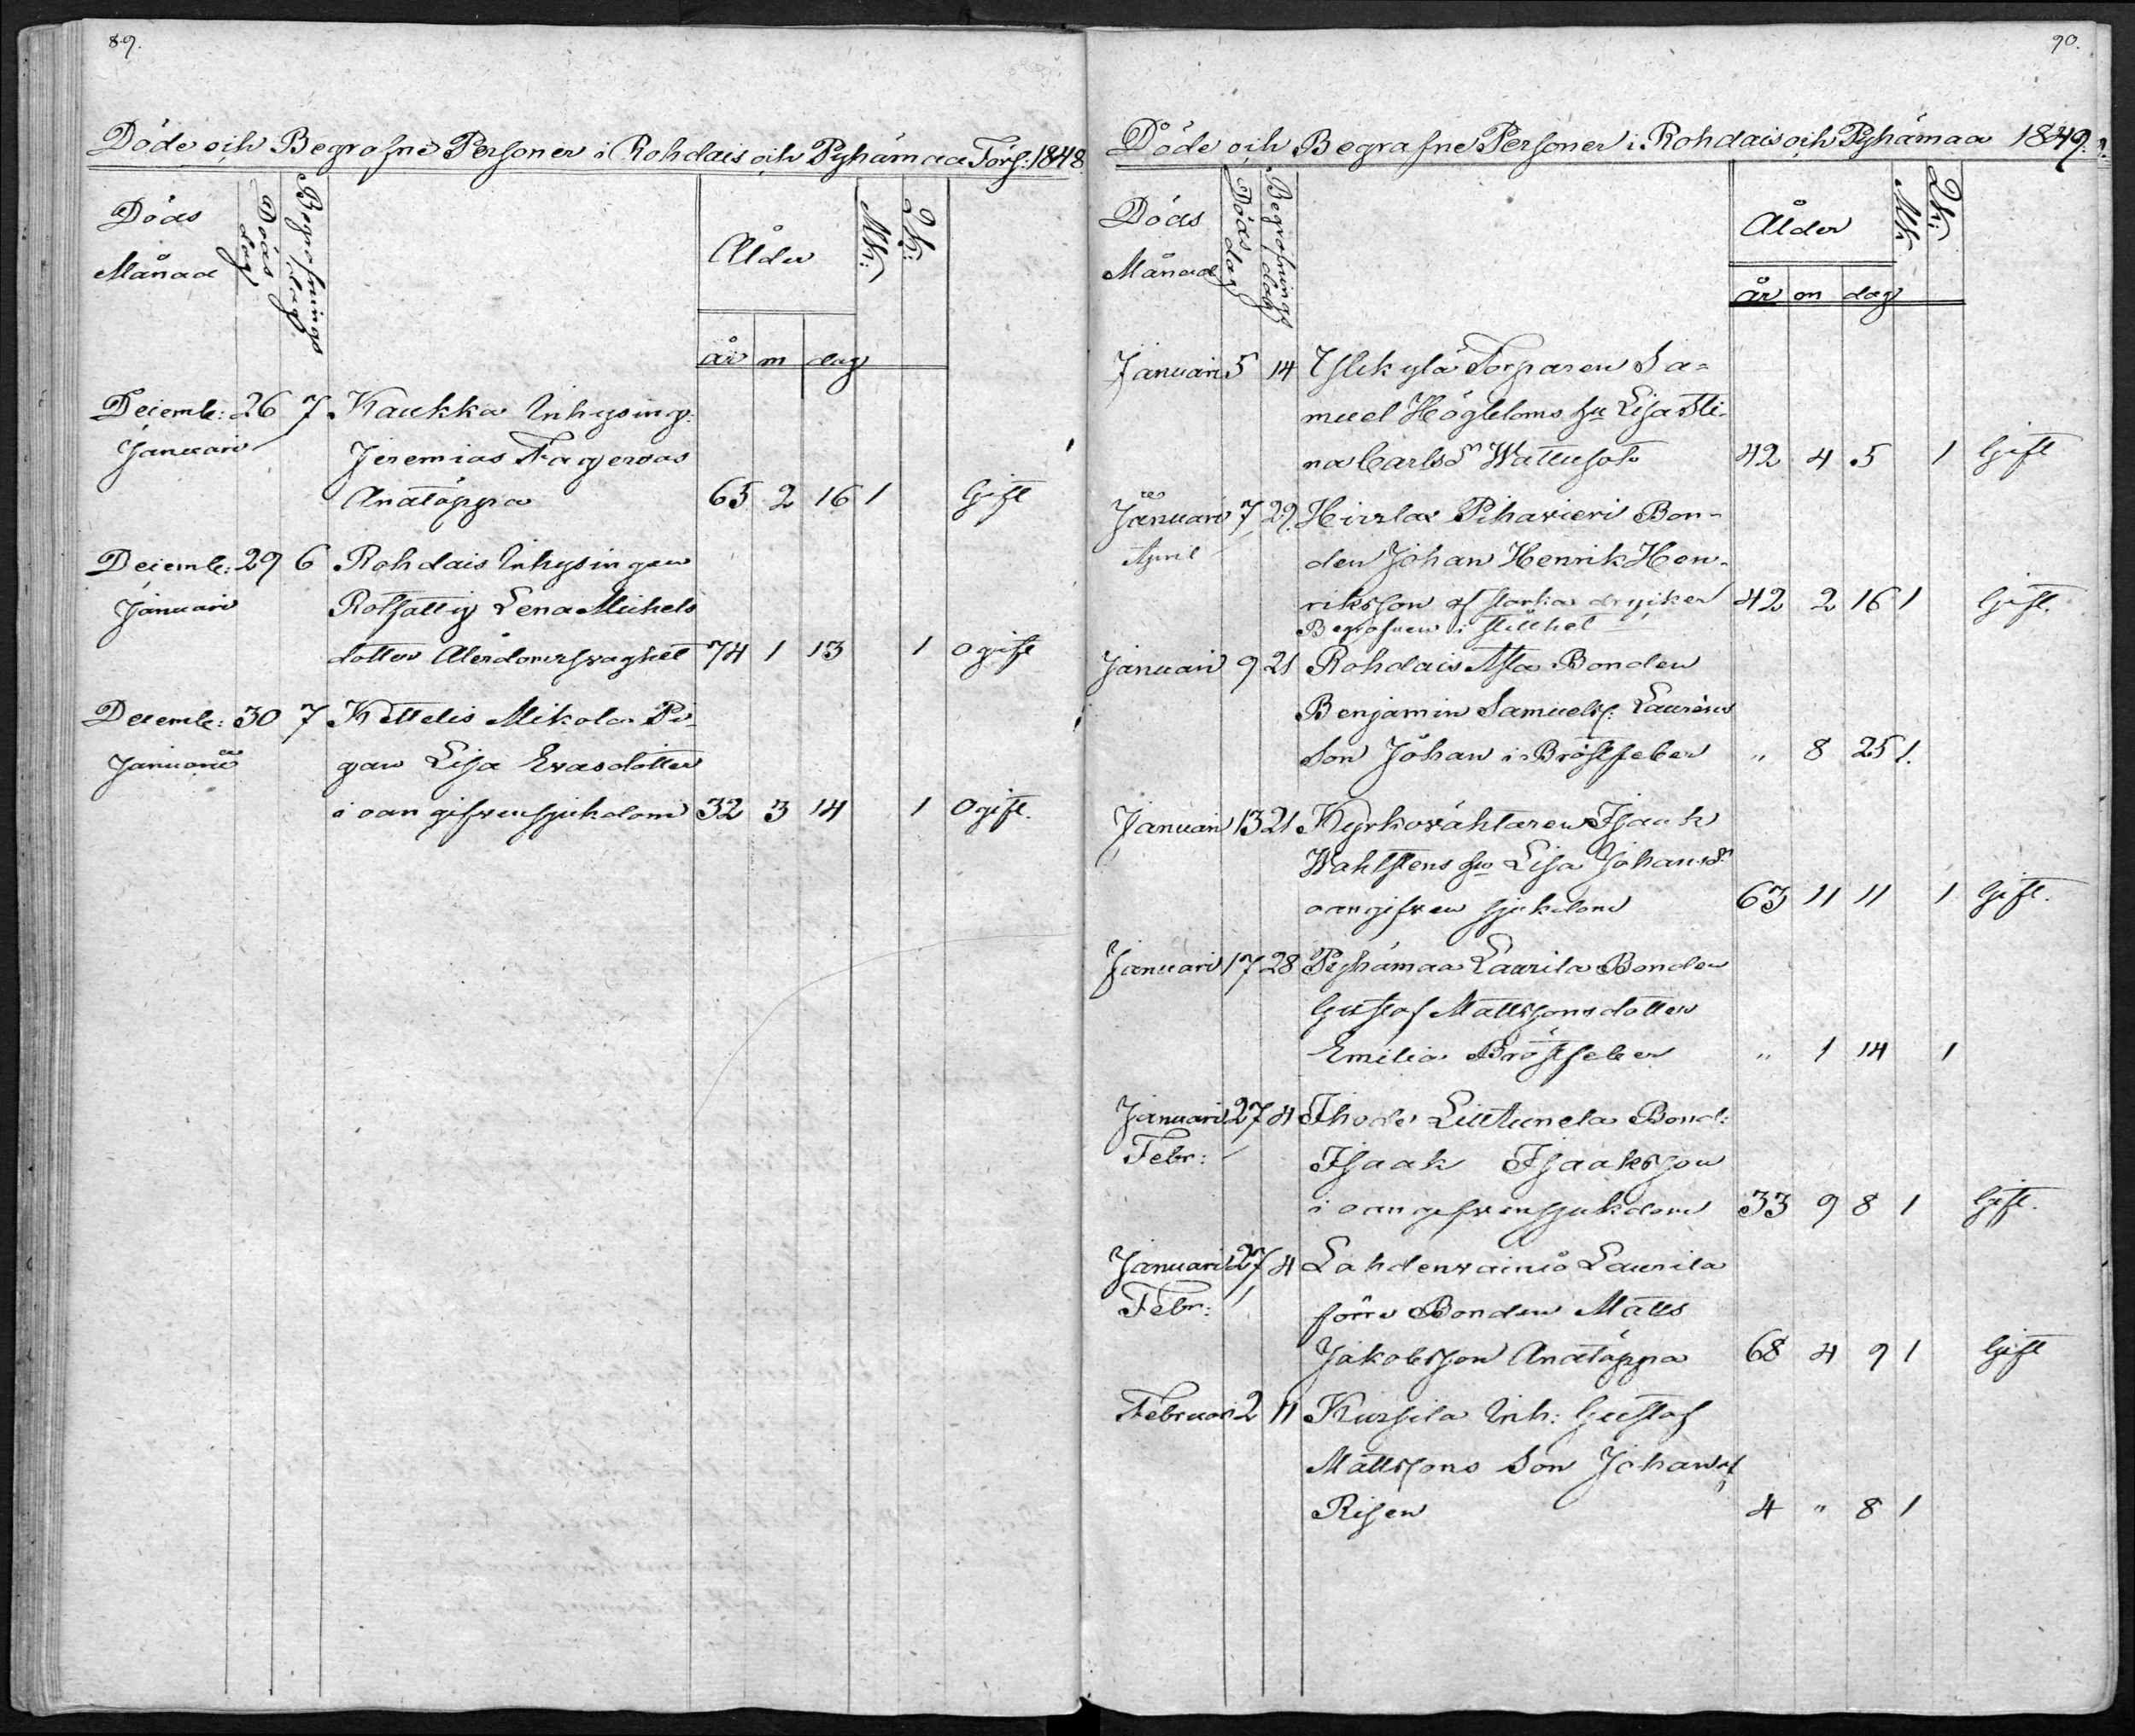 89.
Döde och Begrafne Personer i Rohdais och Pyhämaa Förs: 1848.
Döds
Månad
Döds dag
Begrafnings dag
Ålder
Mk:
Qk:
år m dag
Decemb: 26 7 Kaukka Inhysing:
Januari Jeremias Fagerroos
Andtäppa 65 2 16 1 Gift
Decemb: 29 6 Rohdais Inhysingen
Januari Rotfattig Lena Michels
dotter Ålerdomsswaghet 74 1 13 1 ogift
Decemb: 30 7 Kettelis Mikola Pi-
Januari gan Lisa Ersdotter
i oangifwen sjukdom 32 3 14 1 Ogift.
90.
Döde och Begrafne Personer i Rohdais och Pyhämaa 1849.
Döds
Månad
Döds dag
Begrafnings dag
Ålder
Mk
Qk:
år m dag
Januari 5 14 Ylikylä Torparen Sa=
muel Högbloms hu Lisa Sti-
na Carlsdr Wattusot 42 4 5 1 Gift
Januari 7 29. Hirslax Pihavieri Bon-
April den Johan Henrik Hen-
riksson af starka drycker 42 2 16 1 Gift.
Begrafven i stillhet
Januari 9 21 Rohdais Bonden
Benjamin Samuelss: Lauréns
Son Johan i Bröstfeber " 8 25 1.
Januari 13 21 Kyrkowäktaren Isaak
Wahlstens hu Lisa Johansdr
oangifwen sjukdom 63 11 11 1 Gift.
Januari 17 28 Pyhämaa Laurila Bonden
Gustaf Mattssons dotter
Emilia Bröstfeber " 1 14 1
Januari 27 4 Ihode Bond:
Febr: Isaak Isaaksson
i oangifwen sjukdom 33 9 8 1 Gift.
Januari 27 4 Lahdenwainio Laurila
Febr: förre Bonden Matts
Jakobsson Andtäppa 68 4 9 1 Gift
Februari 2 11 Kursila Inh: Gustaf
Mattssons Son Johan af
Risen 4 " 8 1